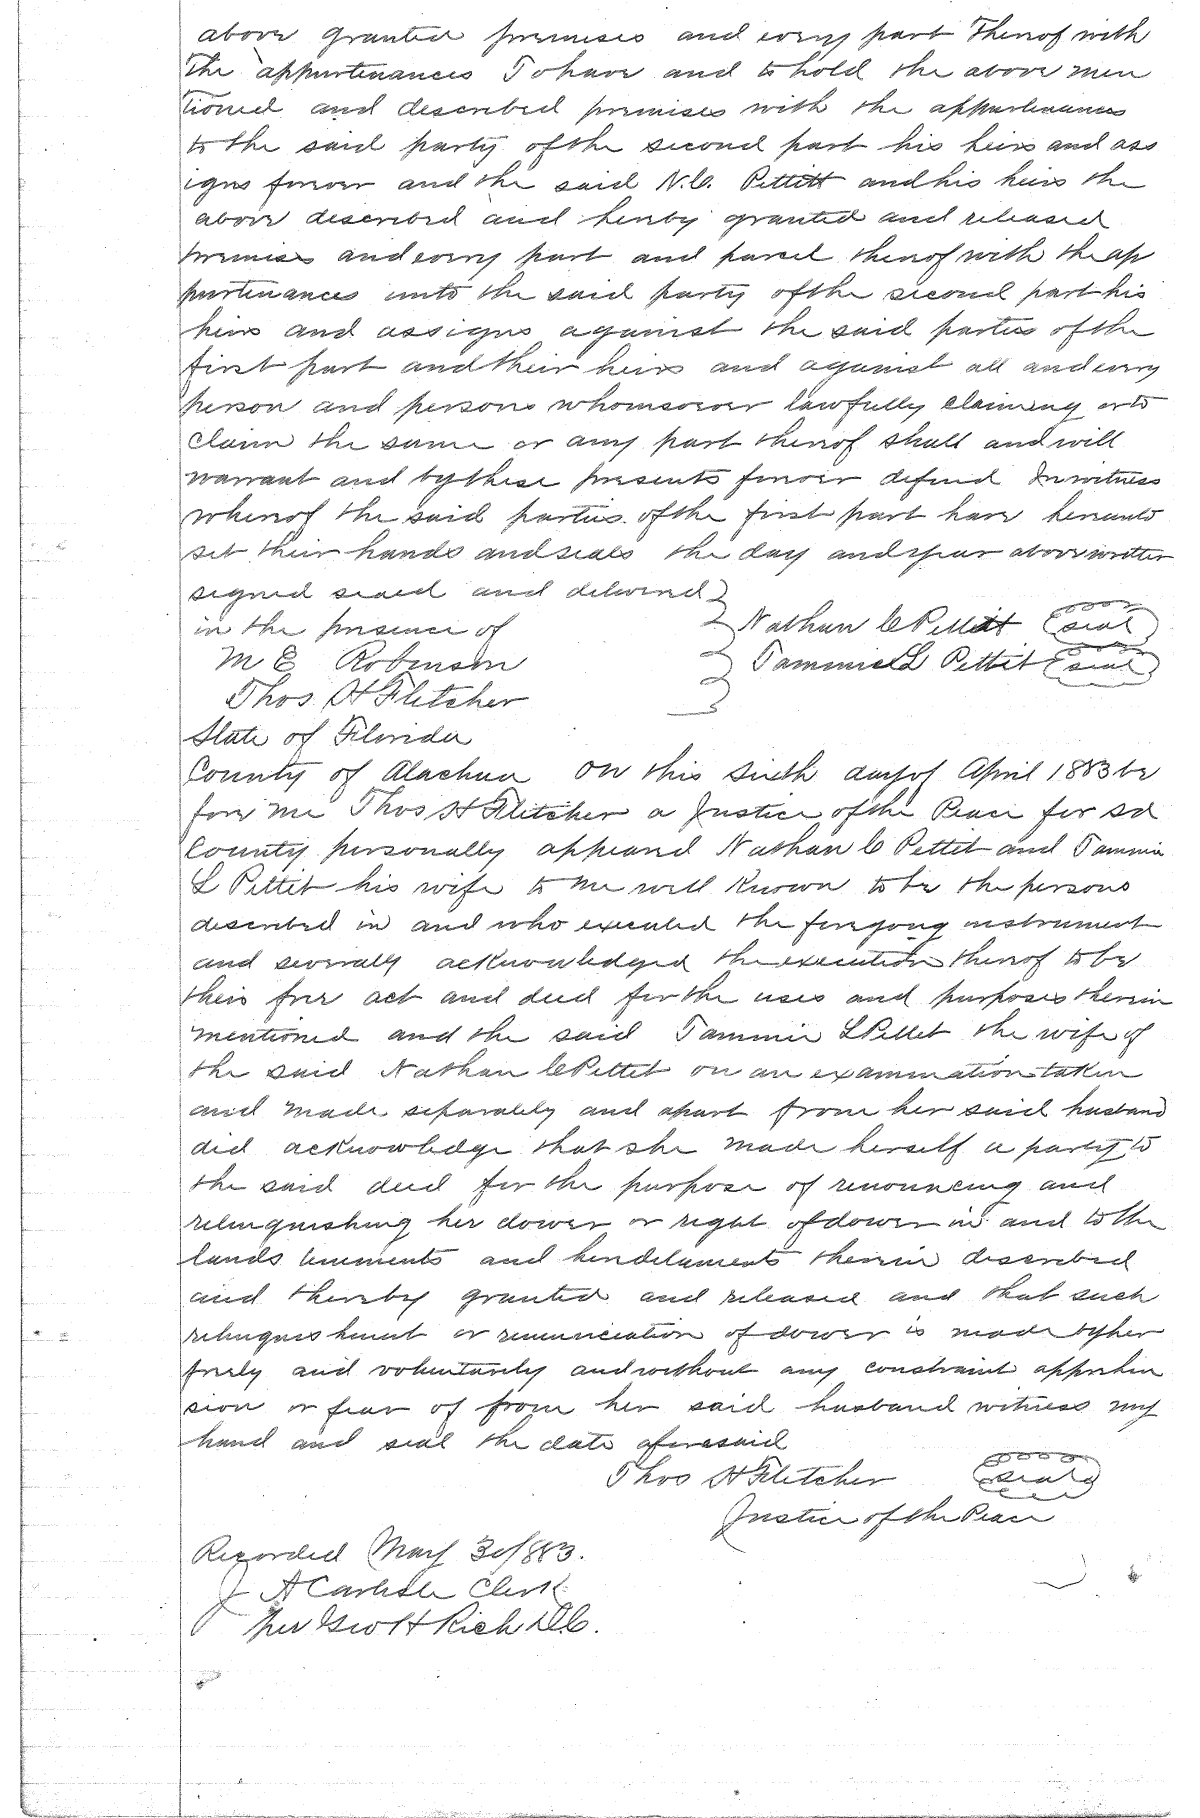 above granted premises and every part Thereof with
The appurtenances To have and to hold the above men
tioned and described premises with the appurtenances
to the said party of the second part his heirs and ass
igns forever and the said N.C. Pettitt and his heirs the
above described and hereby granted and released
premises and every part and parcel thereof with the ap
purtenances unto the said party of the second part his
heirs and assigns against the said parties of the
first part and their heirs and against all and every
person and persons whomsoever lawfully claiming or to
claim the same or any part thereof shall and will
warrant and by these presents forever defend In witness
whereof the said parties of the first part have hereunto
set their hands and seals the day and year above written
signed sealed and delivered
in the presence of Nathan C Pettit seal
M E Robinson Tammie L Pettit seal
Thos H Fletcher
State of Florida
County of Alachua On this sixth day of April 1883 be
fore me Thos H Fletcher a Justice of the Peace for sd
County personally appeared Nathan C Pettit and Tammie
L Pettit his wife to me well Known to be the persons
described in and who executed the foregong instrument
and severally acknowledged the execution thereof to be
their free act and deed for the uses and purposes therein
mentioned and the said Tammie L Pettet the wife of
the said Nathan C Pettet on an examination taken
and made separately and apart from her said husband
did acknowledge that she made herself a party to
the said deed for the purpose of renouncing and
relinquishing her dower or right of dower in and to the
lands tenements and hereditaments therein described
and thereby granted and released and that such
relinquishment or renunciation of dower is made by her
freely and voluntarily and without any constraint apprehen
sion or fear of from her said husband witness my
hand and seal the date aforesaid
Thos H Fletcher seal
Justice of the Peace
Recorded May 3d/883.
J A Carlisle Clerk
per Geo H Rich D.C.